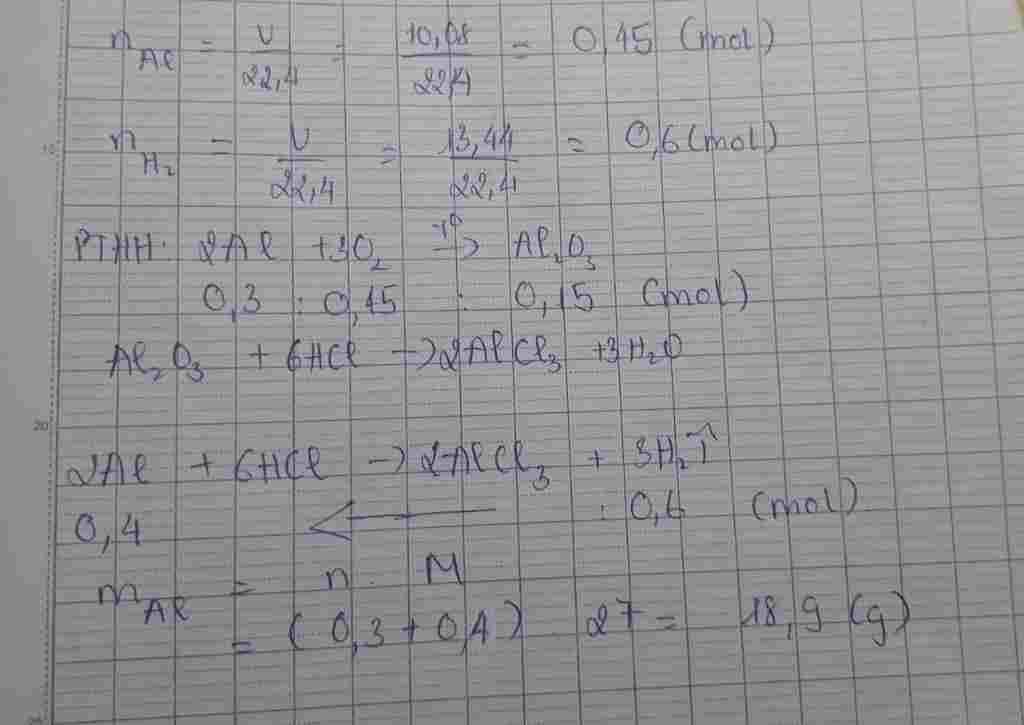 n_Al = V/22,4 = 10,08/22,4 = 0,45 (mol)
n_H₂ = V/22,4 = 13,44/22,4 = 0,6 (mol)
PTHH: 2Al + 3O₂ t⁰→ Al₂O₃
0,3 : 0,45 : 0,15 (mol)
Al₂O₃ + 6HCl → 2AlCl₃ + 3H₂O
20
2Al + 6HCl → 2AlCl₃ + 3H₂↑
0,4 ← : 0,6 (mol)
m_Al = n . M
= (0,3 + 0,4) . 27 = 18,9 (g)